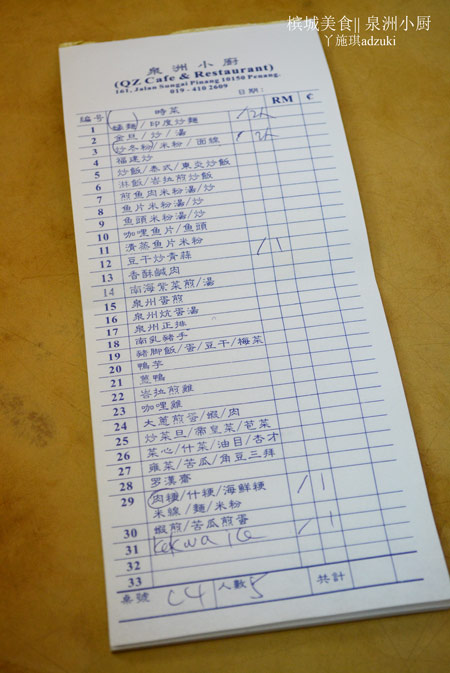 槟城美食|| 泉洲小厨
丫施琪adzuki
泉洲小廚
(QZ Cafe & Restaurant)
161, Jalan Sungai Pinang 10150 Penang.
019 - 410 2609
日期:
編号 時菜 RM ¢
1 /印度炒麵 /2大
2 金旦/炒/湯
3 炒冬粉/米粉/面線 /2大
4 福建炒
5 炒飯/泰式/東炎炒飯
6 淋飯/峇拉煎炒飯
7 煎魚肉米粉湯/炒
8 魚片米粉湯/炒
9 魚頭米粉湯/炒
10 咖哩魚片/魚頭
11 清蒸魚片米粉
12 豆干炒青蒜 /1
13 香酥鹹肉
14 南海紫菜煎/湯
15 泉州蚕煎
16 泉州炕蚕湯
17 泉州正排
18 南乳豬手
19 豬脚飯/蛋/豆干/梅菜
20 鴨芋
21 蔥鴨
22 峇拉煎雞
23 咖哩雞
24 大蔥煎蛋/蝦/肉
25 炒菜旦/帝皇菜/芭菜
26 菜心/什菜/油目/杏才
27 雍菜/苦瓜/角豆三拜
28 罗漢齋
29 肉粳/什粳/海鮮粳 /1
米線/麵/米粉
30 蝦煎/苦瓜煎蛋 /1
31 kekwa ice
32
33
桌號 C4 人數 5 共計